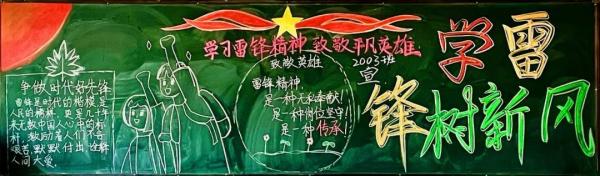 学习雷锋精神 致敬平凡英雄
2003班
宣
学雷
锋树新风
致敬英雄
雷锋精神
是一种无私奉献!
是一种岗位坚守
是一种传承!
争做时代好先锋
雷锋是时代的楷模是
人民的榜样,更是几十年
来无数中国人心中的标
杆,教励着人们不畏
艰苦,默默付出,诠释
人间大爱